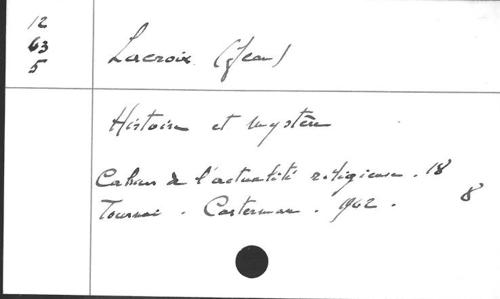 12
63
5
Lacroix (Jean)
Histoire et mystère
Cahiers de l'actualité religieuse. 18
Tournai. Casterman. 1962.
8